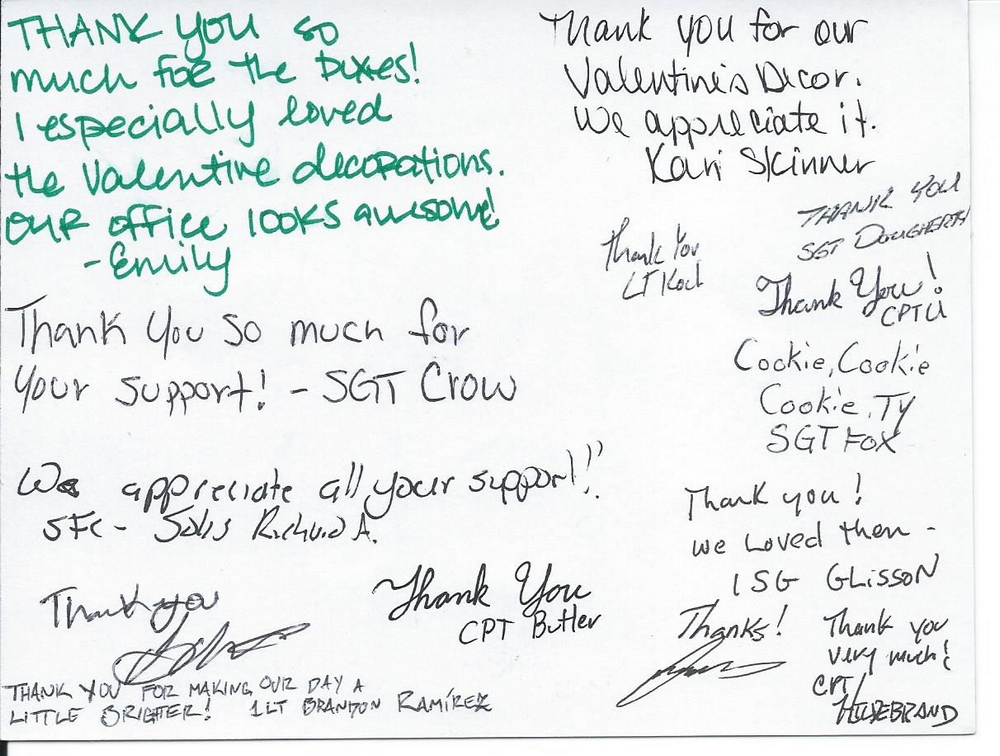 THANK YOU so
much FOR the boxes!
I especially loved
the Valentine decorations.
OUR office looks awesome!
-Emily
Thank you for our
Valentine's Decor.
We appreciate it.
Kari Skinner
THANK YOU
SGT DOUGHERTY
Thank You
LT Koch
Thank You!
CPT U
Thank You so much for
your support! - SGT Crow
Cookie, Cookie
Cookie, TY
SGT FOX
We appreciate all your support!!
SFC - Solis Richard A.
Thank you!
we Loved them -
1SG GLISSON
Thank you
Thank You
CPT Butler
Thanks!
Thank you
very much!
CPT
HILDEBRAND
THANK YOU FOR MAKING OUR DAY A
LITTLE BRIGHTER! 1LT BRANDON RAMÍREZ